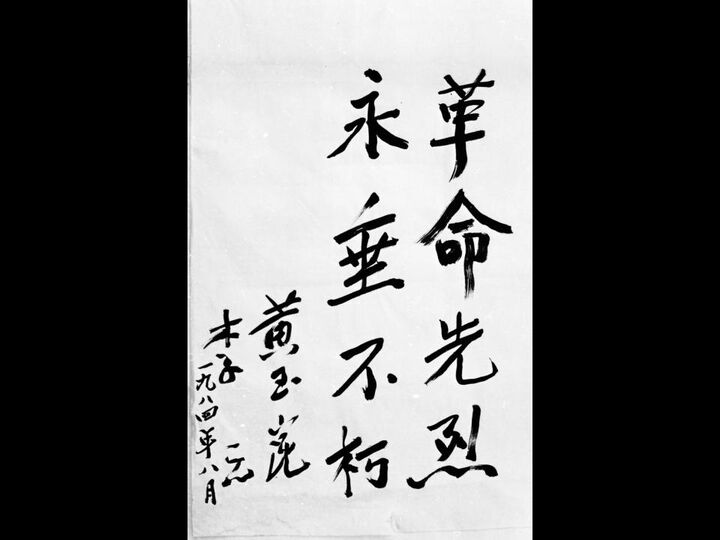 革命先烈
永垂不朽
黄玉崑
李
一九八四年八月